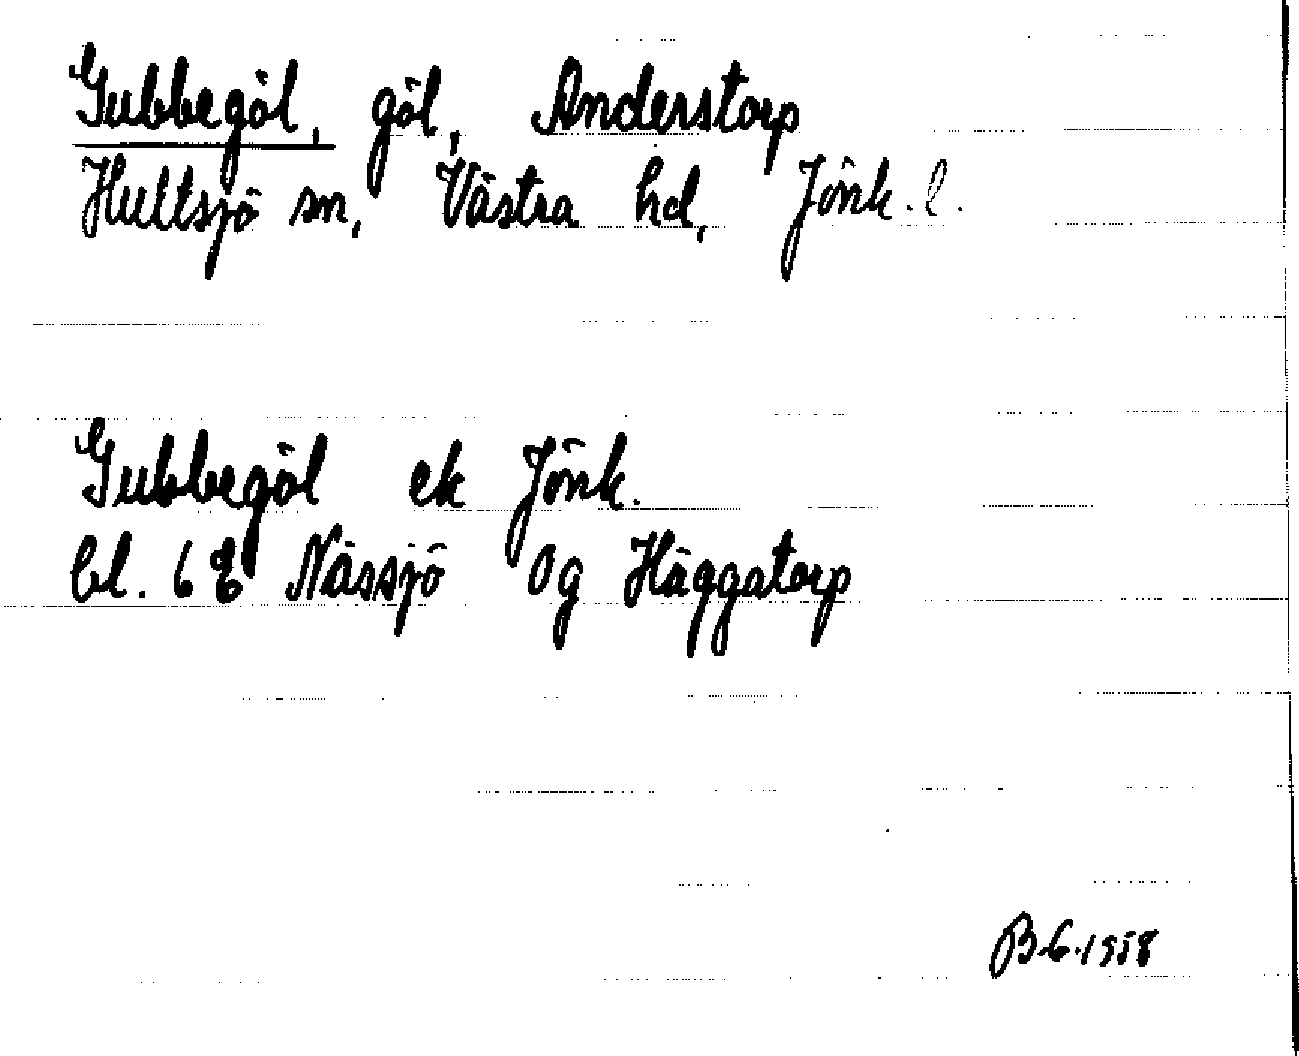 Gubbegöl, göl, Anderstorp
Hultsjö sn, Västra hd, Jönk. l.
Gubbegöl ek Jönk.
bl. 6 E Nässjö 0g Häggatorp
B.G. 1958